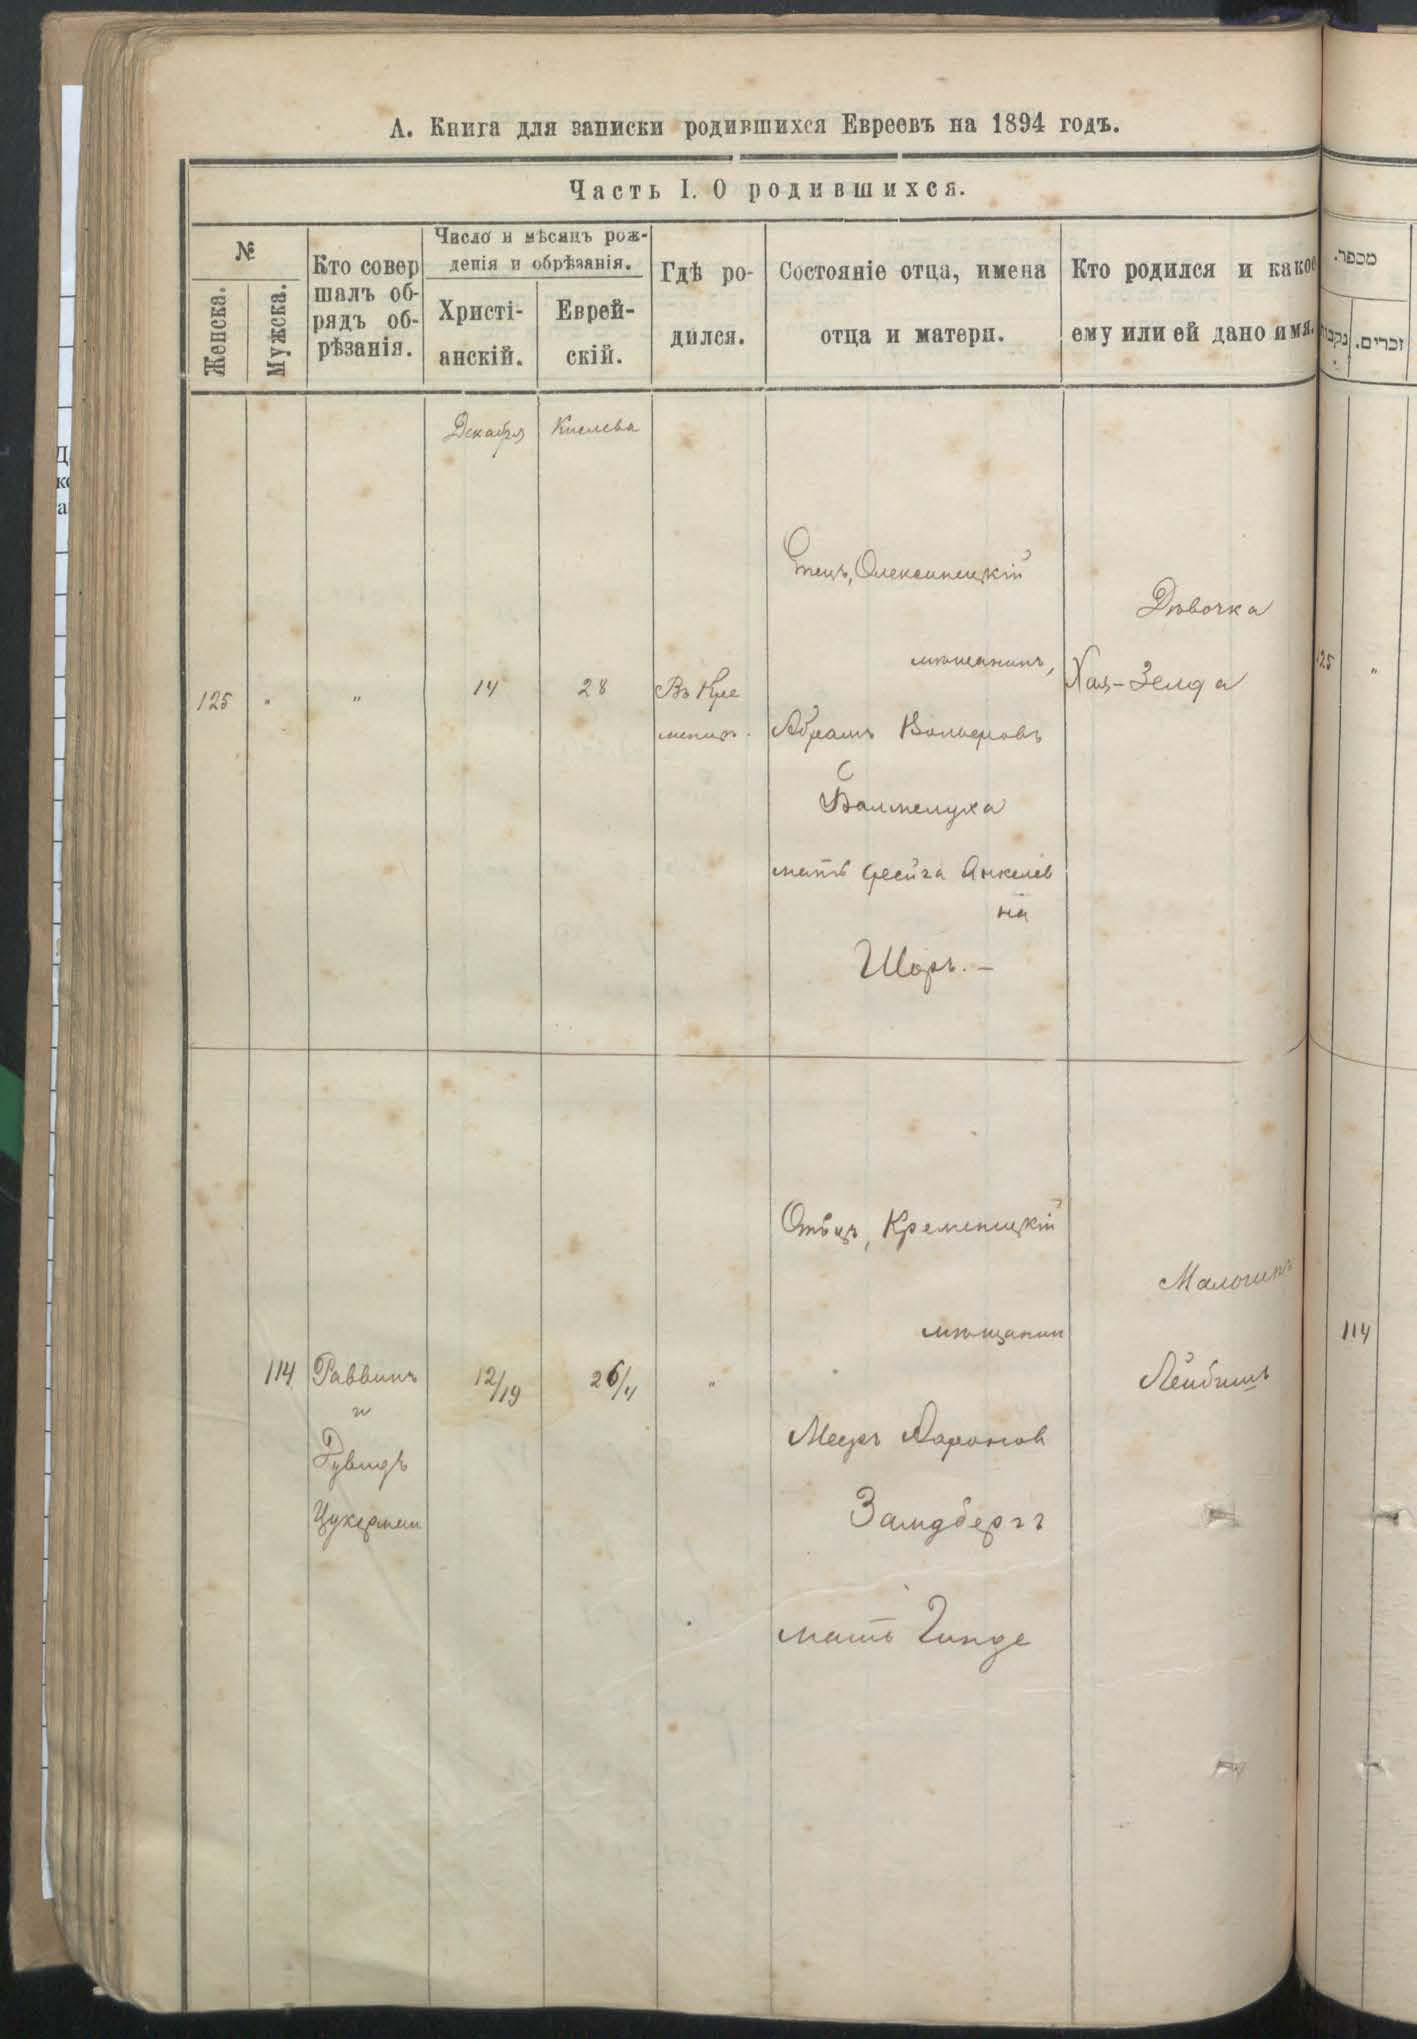 А. Книга для записки родившихся Евреевъ на 1894 годъ.
Часть I. О родившихся.
№
Женска.
Мужска.
Кто совер
шалъ об-
рядъ об-
рѣзанія.
Число и мѣсяцъ рож-
денія и обрѣзанія.
Христі-
анскій.
Еврей-
скій.
Гдѣ ро-
дился.
Состояніе отца, имена
отца и матери.
Кто родился и какое
ему или ей дано имя.
מספר.
זכרים.
Декабря
Кислева
125
"
"
14
28
Въ Кре
менцѣ.
Отецъ, Олексинецкій
мѣщанинъ,
Абрамъ Вольфовъ
мать Фейга Янкелев
на
Шоръ. —
Дѣвочка
Хая-Зелда
125
"
114
Раввинъ
и
Цукерман
12/19
26/4
"
Отецъ, Кременецкій
мѣщанин
Меер Аронов
Замдбергъ
мать Гинде
Мальчикъ
Лейбишъ
114